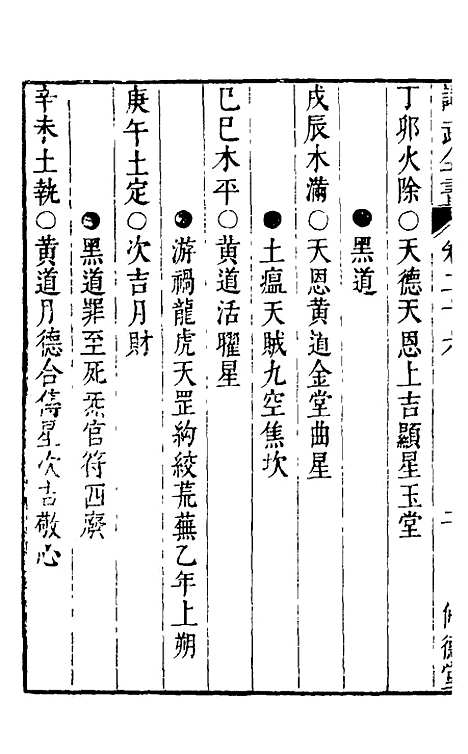 卷二十六
丁卯火除○天德天恩上吉顯星玉堂
●黑道
戌辰木滿○天恩黄道金堂曲星
●土瘟天賊九空焦坎
巳巳木平○黄道活曜星
●游禍龍虎天罡勾絞荒蕪乙年上朔
庚午土定○次吉月財
●黑道罪至死炁官符西廢
辛未土執○黄道月德合儔星次吉敬心